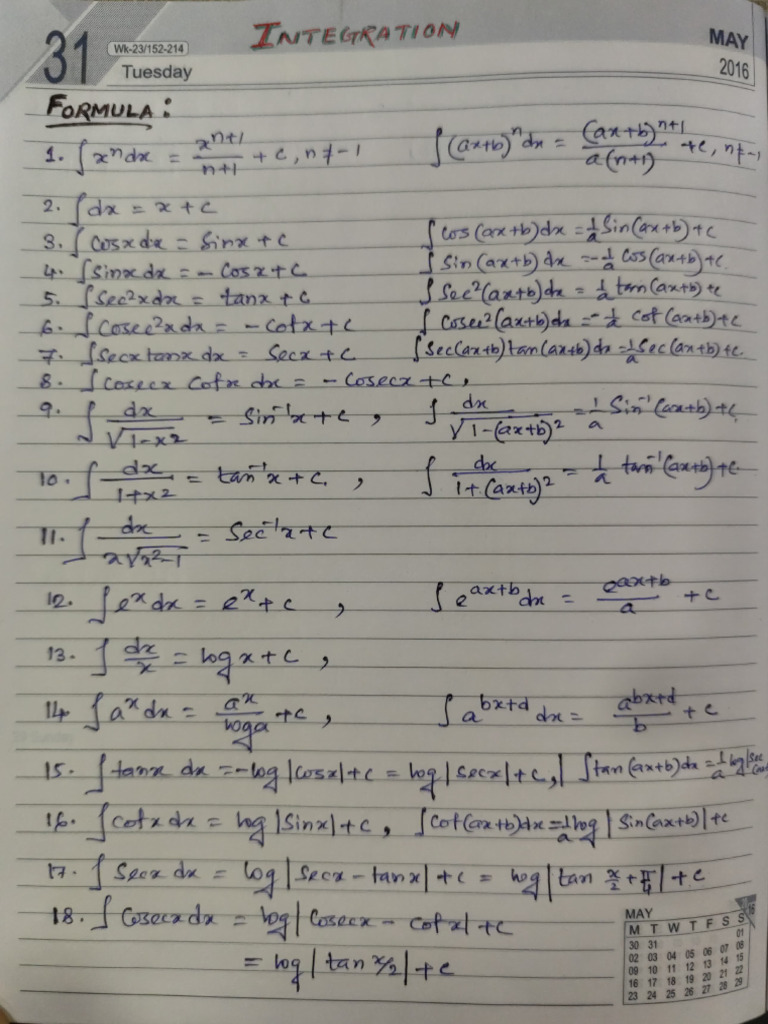 31 Wk-23/152-214 INTEGRATION MAY
Tuesday 2016
FORMULA :
1. ∫xⁿdx = xⁿ⁺¹/n+1 + c, n≠-1 ∫(ax+b)ⁿdx = (ax+b)ⁿ⁺¹/a(n+1) + c, n≠-1
2. ∫dx = x + c
3. ∫cosx dx = Sinx + c ∫cos(ax+b)dx = 1/a Sin(ax+b)+c
4. ∫sinx dx = - Cosx + c ∫sin(ax+b)dx = -1/a Cos(ax+b)+c
5. ∫Sec²xdx = tanx + c ∫Sec²(ax+b)dx = 1/a tan(ax+b)+c
6. ∫Cosec²xdx = - cotx + c ∫cosec²(ax+b)dx = -1/a cot(ax+b)+c
7. ∫Secx tanx dx = Secx + c ∫Sec(ax+b)tan(ax+b)dx = 1/a Sec(ax+b)+c.
8. ∫cosecx Cotx dx = - Cosecx + c,
9. ∫dx/√(1-x²) = Sin⁻¹x + c , ∫dx/√(1-(ax+b)²) = 1/a Sin⁻¹(ax+b)+c
10. ∫dx/1+x² = tan⁻¹x + c. , ∫dx/1+(ax+b)² = 1/a tan⁻¹(ax+b)+c.
11. ∫dx/x√(x²-1) = Sec⁻¹x + c
12. ∫eˣdx = eˣ + c , ∫e^(ax+b) dx = e^(ax+b)/a + c
13. ∫dx/x = log x + c ,
14. ∫aˣdx = aˣ/loga + c , ∫a^(bx+d) dx = a^(bx+d)/b + c
15. ∫tanx dx = -log|cosx|+c = log|secx|+c, | ∫tan(ax+b)dx = 1/a log|Sec
16. ∫cotx dx = log|Sinx|+c , ∫Cot(ax+b)dx = 1/a log|Sin(ax+b)|+c
17. ∫Secx dx = log|Secx - tanx|+c = log|tan x/2 + π/4|+c
18. ∫Cosecx dx = log|Cosecx - cotx|+c
= log|tan x/2|+c
MAY
M T W T F S S
01
30 31
02 03 04 05 06 07 08
09 10 11 12 13 14 15
16 17 18 19 20 21 22
23 24 25 26 27 28 29